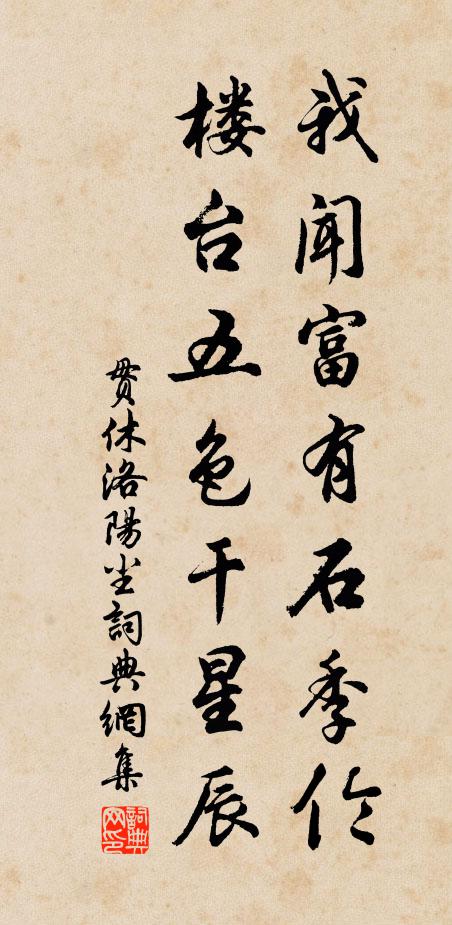 我闻富有石季伦
楼台五色干星辰
贯休洛陽尘詞典網集
詞典网印